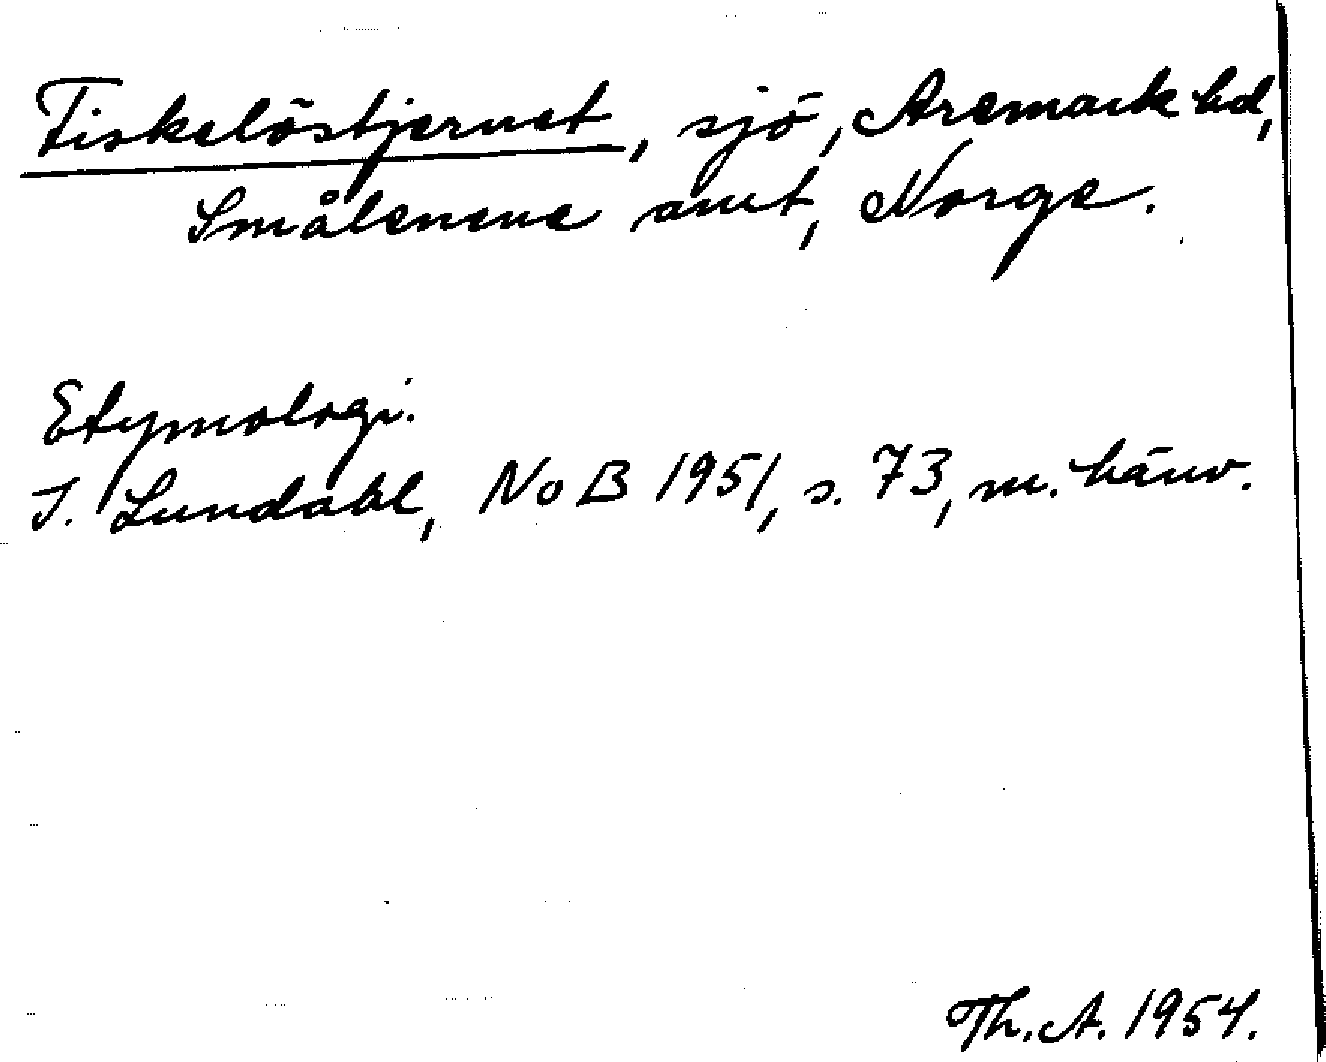 Fiskelöstjernet, sjö, Aremark hd,
Smålenene amt, Norge.
Etymologi.
I. Lundahl, NoB 1951, s. 73, m. hänv.
Th. A. 1954.